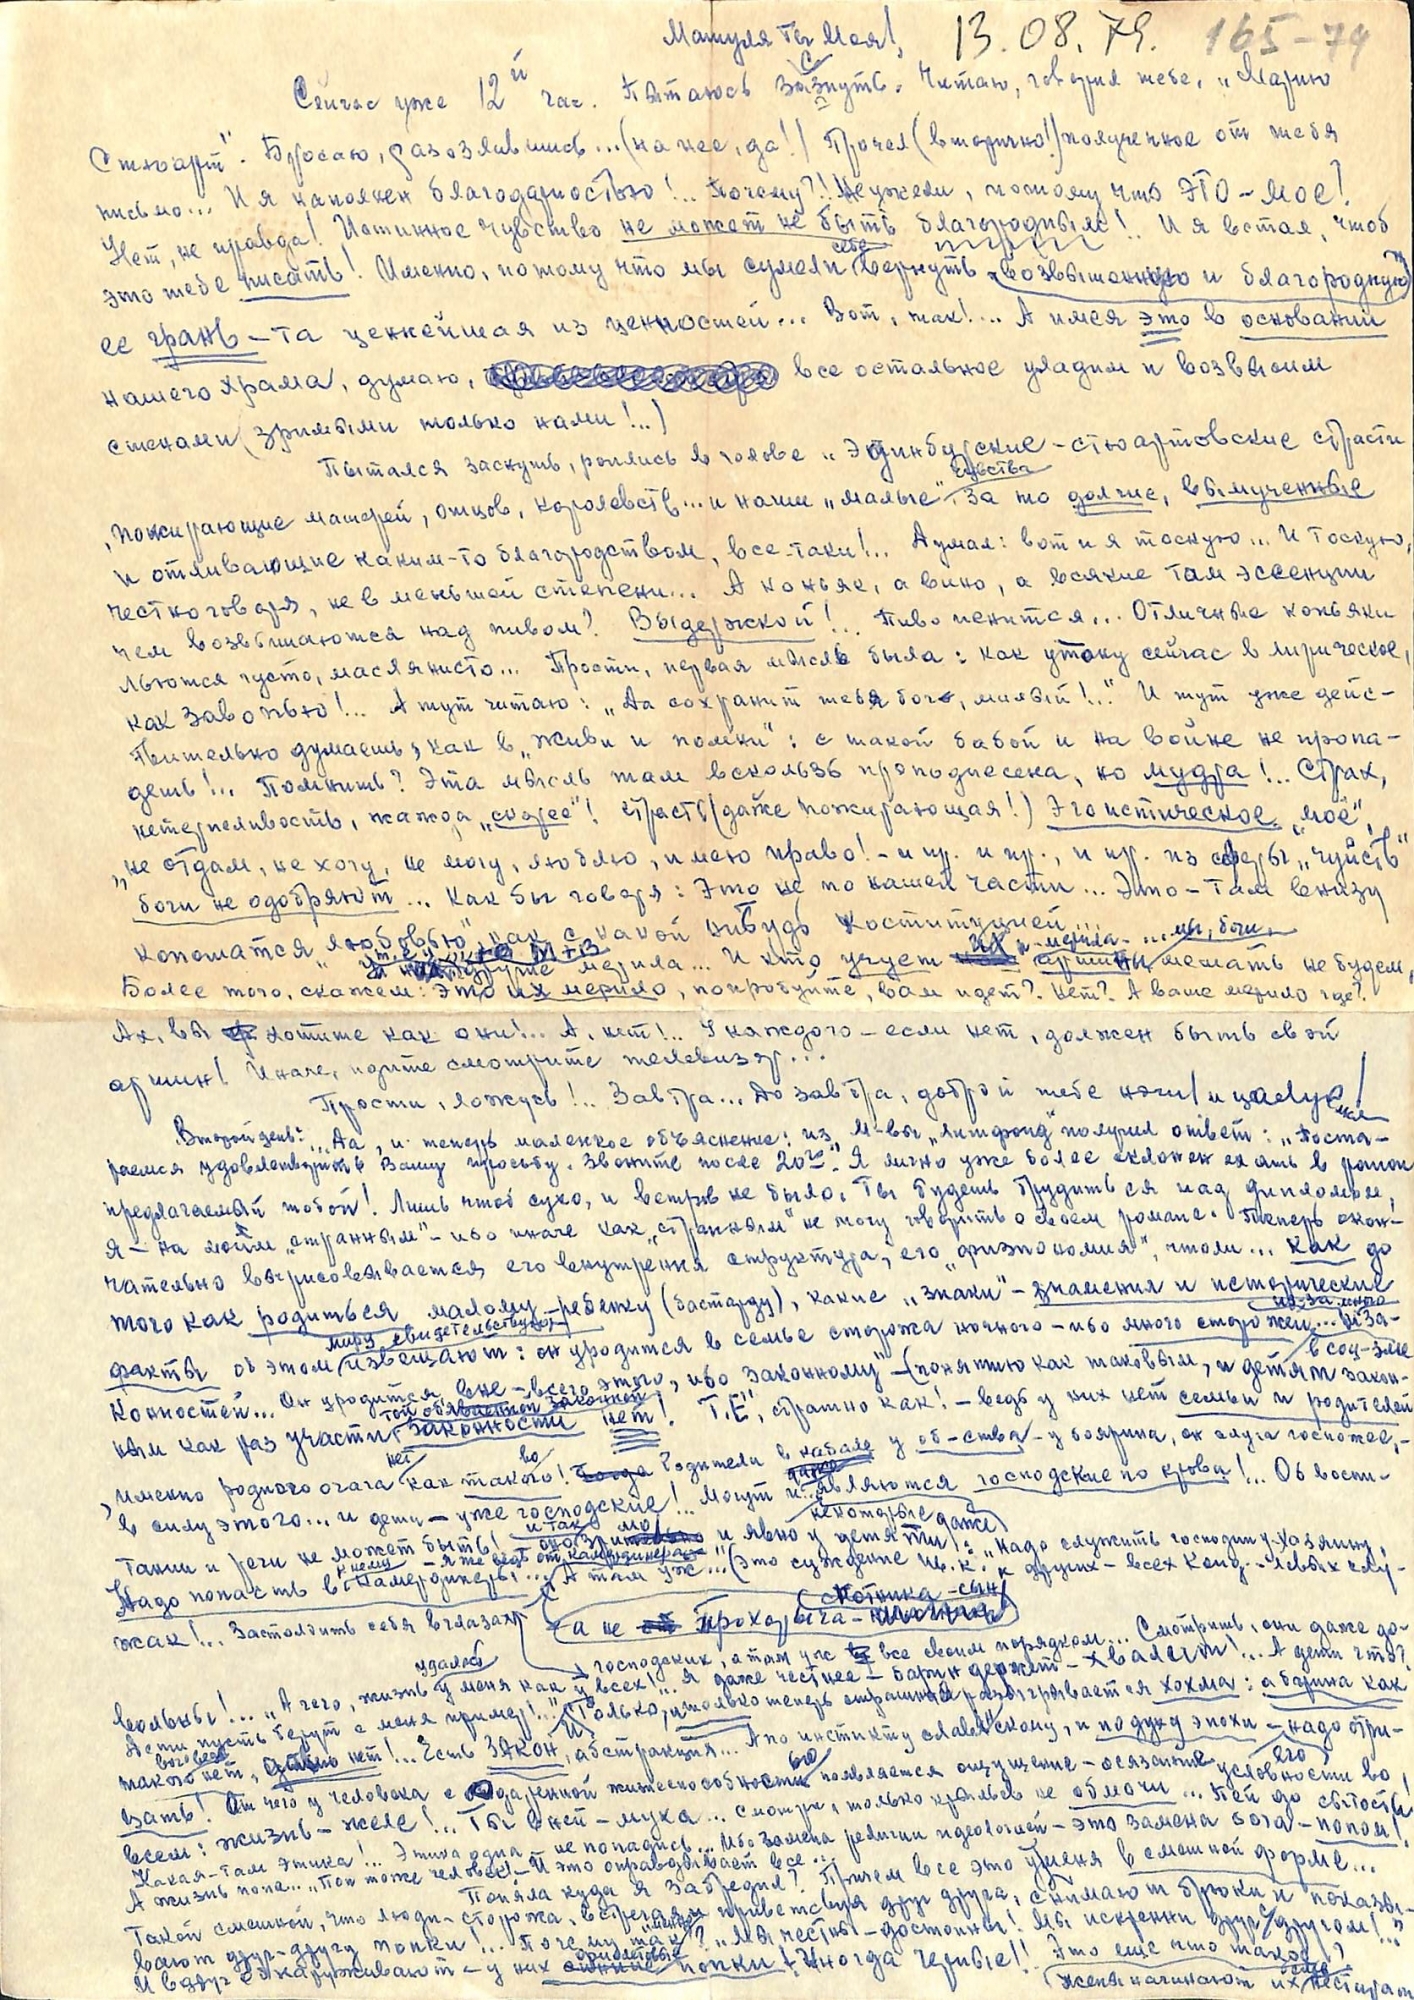 Матуля ты моя! 13.08.79. 165-79
Сейчас уже 12й час. Пытаюсь заснуть. Читаю, говорил тебе, „Марию
Стюарт". Бросаю, разозлившись...(на нее, да!) Прочел (вторично!) полученное от тебя
письмо... И я наполнен благодарностью!.. Почему?! Неужели, потому что ЭТО – мое?
Нет, не правда! Истинное чувство не может не быть благородным!.. И я встал, чтоб
это тебе писать! Именно, потому что мы сумели себе вернуть возвышенную и благородную
ее грань – та ценнейшая из ценностей... Вот, так!... А имея это в основании
нашего храма, думаю, все остальное уладим и возвысим
стенами (зримыми только нами!..)
Пытался заснуть, роились в голове „Эдинбургские – стюартовские страсти
пожирающие матерей, отцов, королевств... и наши „малые" чувства за то долгие, вымученные
и отливающие каким-то благородством, все-таки!.. Думал: вот и я тоскую... И тоскую,
честно говоря, не в меньшей степени... А коньяк, а вино, а всякие там эссенции
чем возвышаются над пивом? Выдержкой!.. Пиво пенится... Отличные коньяки
льются густо, маслянисто... Прости, первая мысль была: как утону сейчас в лирическое,
как завопью!.. А тут читаю: „Да сохранит тебя бог, милый!.." И тут уже дейс-
твительно думаешь, как в „Живи и помни": с такой бабой и на войне не пропа-
дешь!.. Помнишь? Эта мысль там вскользь преподнесена, но мудра!.. Страх,
нетерпеливость, жажда „скорее"! страсть (даже пожирающая!) Эгоистическое „моё",
„не отдам, не хочу, не могу, люблю, имею право! – и пр. и пр., и пр. из сферы „чуйств"
боги не одобряют... Как бы говоря: Это не по нашей части... Это – там внизу
копошатся „любовью", как с какой нибудь конституцией...
другие мерила... И кто учует их – мерила – ... мы, боги, мешать не будем,
Более того, скажем: это их мерило, попробуйте, вам идет? Нет? А ваше мерило где?
Ах, вы хотите как они!... А, нет!.. У каждого – если нет, должен быть свой
аршин! Иначе, идите смотрите телевизор...
Прости, ложусь!.. Завтра... До завтра, доброй тебе ночи! и целую!
Второй день: ...Да, и теперь маленькое объяснение: из М-вы „Литфонд" получил ответ: „Поста-
раемся удовлетворить Вашу просьбу. Звоните после 20го." Я лично уже более склонен ехать в район
предлагаемый тобой! Лишь чтоб сухо, и ветров не было. Ты будешь трудиться над дипломом,
я – на моим „странным" – ибо иначе как „странным" не могу говорить о своем романе. Теперь окон-
чательно вырисовывается его внутренняя структура, его „физиономия", чтоли... Как до
того как родиться малому – ребенку (бастарду), какие „знаки" – знамения и исторические
факты об этом миру свидетельствуют, извещают: он уродится в семье сторожа ночного – ибо много сторожей... из за много За-
конностей... Он уродится вне – всего этого, ибо законному" – (понятию как таковым, и детям закон-
ным как раз участи той объявленной законной законности нет! Т.Е., страшно как! – ведь у них нет семьи и родителей
, именно родного очага нет как такового! Родители в кабале у об-ства – у боярина, он слуга госпоже, –
в силу этого... и дети – уже господские!.. Могут и являются некоторые даже господские по крови!... Об воспи-
тании и речи не может быть! и явно у дитяти: „Надо служить господину-хозяину,
Надо попасть в камердинеры... А там уж..." (это суждение к других – всех слу-
жак!... Застолбить себя в глазах господских, а там уж все своим порядком... Смотришь, они даже до-
а не Прохорыча – скотника – сын
вольны!... „А чего, жизнь у меня удалась как у всех!... Я даже честнее – барин держит – хвалят!... А дети что?
Дети пусть берут с меня пример!..." Только, и только теперь страшная разыгрывается хохма: а барина как
такого нет, вовсе нет!... Есть ЗАКОН, абстракция... А по инстикту славянскому, и по духу эпохи – надо отри-
цать! От чего у человека с одаренной жизнеспособностью появляется ощущение – осязание его условности во
всем: жизнь – желе!... Ты в ней – муха... смотри, только крыльев не обмочи... Пей до сытости!
Какая-там этика!... Этика одна – не попадись... Ибо замена религии идеологией – это замена бога – попом!
А жизнь попа... „Поп тоже человек!" – И это оправдывает все...
Поняла куда я забредил? Причем все это у меня в смешной форме...
Такой смешной, что люди – сторожа, встречая и приветствуя друг друга, снимают брюки и показы-
вают друг-другу попки!.. Почему так? „Мы честны – достойны! Мы искренни друг с другом!.."
И вдруг обнаруживают – у них попки! Иногда червые!! Это еще что такое?
Жены начинают их